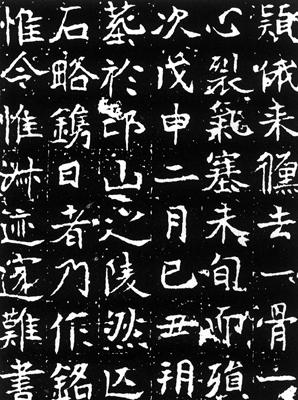 俄未去一骨一
心裂氣塞未旬而殞
次戊申二月己丑朔
葬於邙山之陵然
石略鐫日者乃作銘
惟令惟淑迹難書